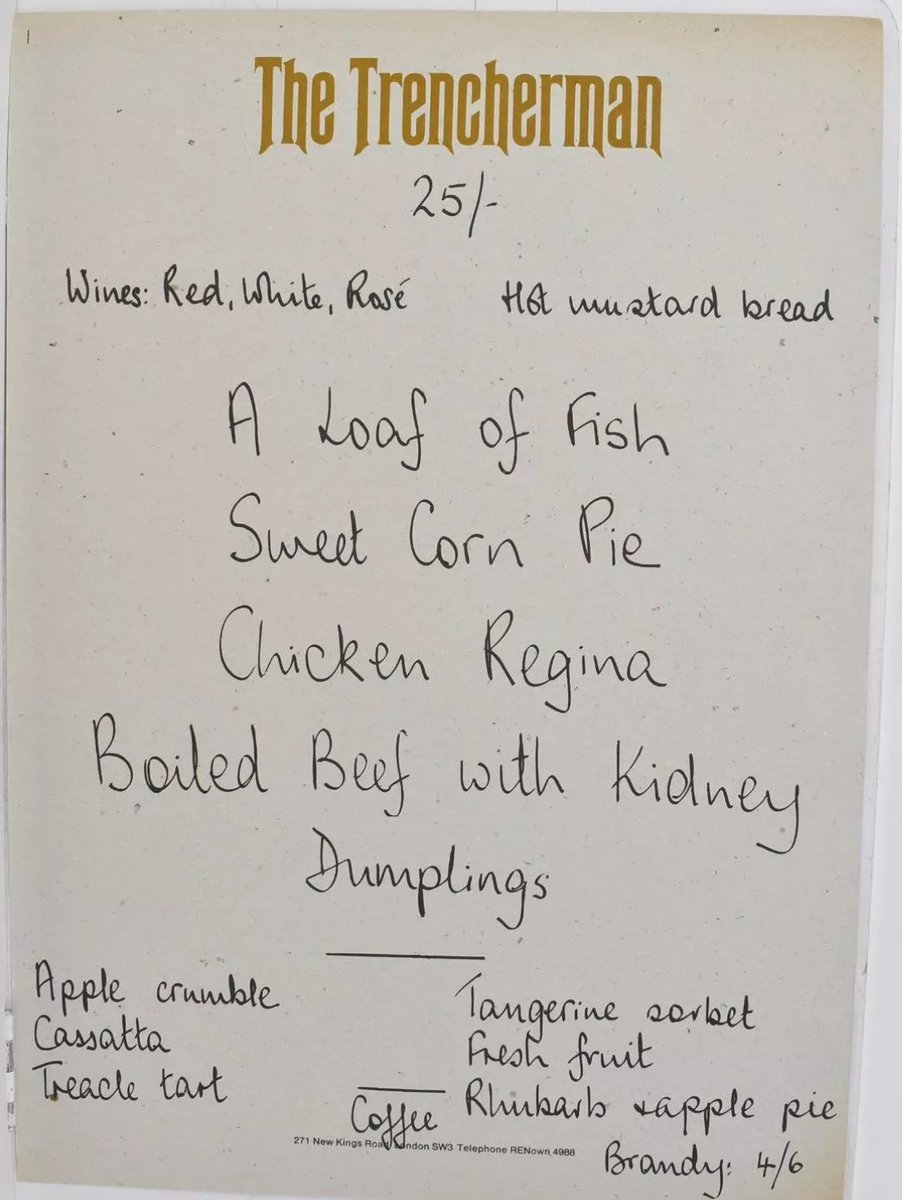 The Trencherman
25/-
Wines: Red, White, Rosé
Hot mustard bread
A Loaf of Fish
Sweet Corn Pie
Chicken Regina
Boiled Beef with Kidney
Dumplings
Apple crumble
Cassatta
Treacle tart
Tangerine sorbet
Fresh fruit
Rhubarb & apple pie
Coffee
271 New Kings Road London SW3 Telephone RENown 4988
Brandy: 4/6